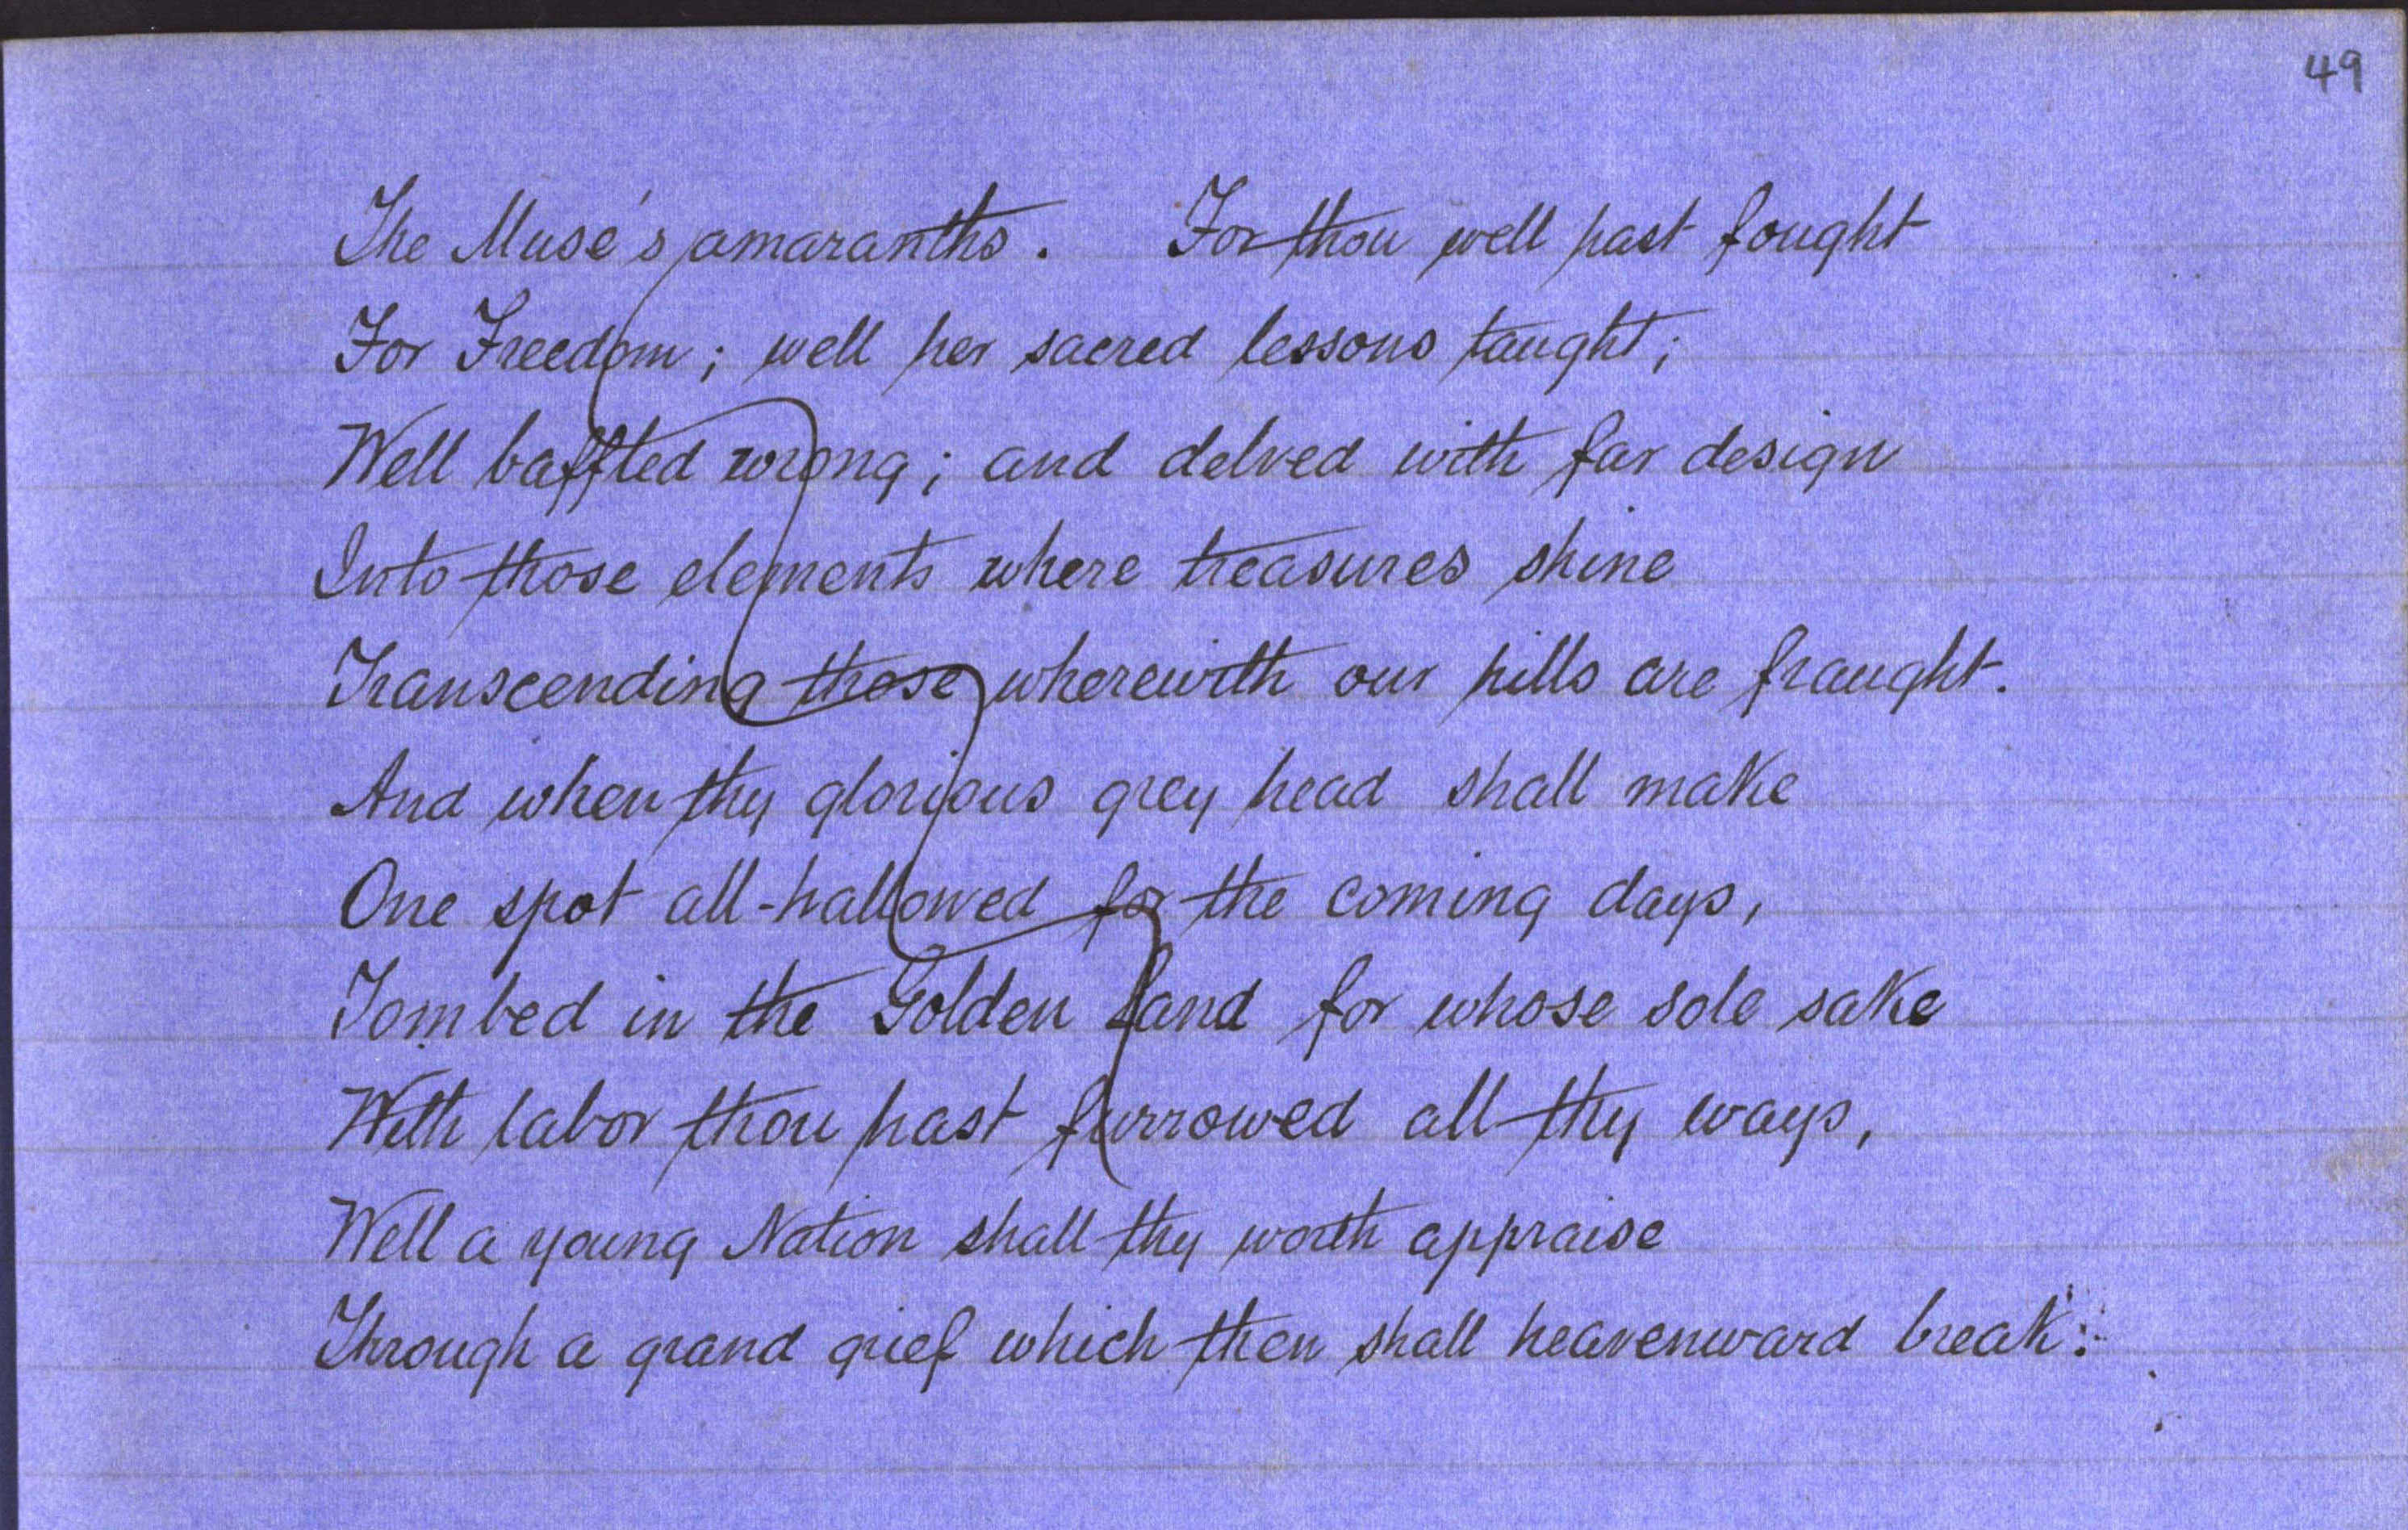 49
The Muse's amaranths. For thou well hast fought
For Freedom; well her sacred lessons taught;
Well baffled wrong; and delved with far design
Into those elements where treasures shine
Transcending those wherewith our hills are fraught.
And when thy glorious grey head shall make
One spot all-hallowed for the coming days,
Tombed in the Golden Land for whose sole sake
With labor thou hast furrowed all thy ways,
Well a young Nation shall thy worth appraise
Through a grand grief which then shall heavenward break: